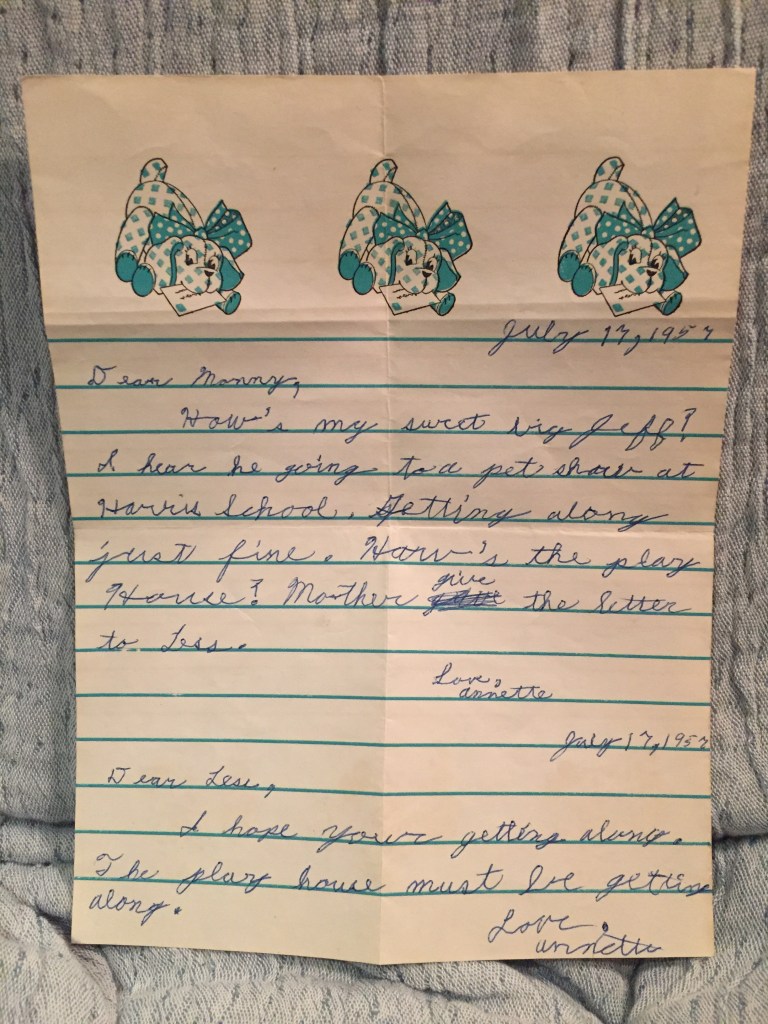 July 17, 1957
Dear Mommy,
How's my sweet big Jeff?
I hear he going to a pet show at
Harris School. Getting along
just fine. How's the play
House? Mother give the letter
to Less.
Love,
Annette
July 17, 1957
Dear Less,
I hope your getting along.
The play house must be getting
along.
Love,
Annette